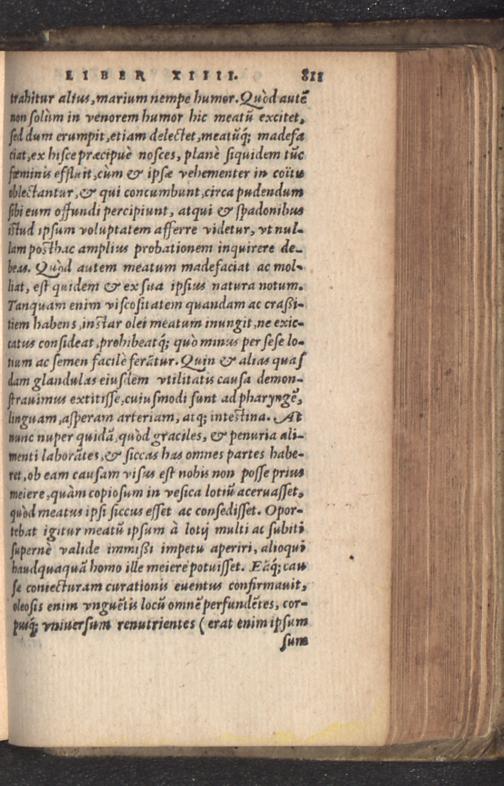 LIBER XIIII. 811
trahitur altus, marium nempe humor. Quòd autē
non solùm in venorem humor hic meatū excitet,
sed dum erumpit, etiam delectet, meatūq́; madefa
ciat, ex hisce præcipuè nosces, planè siquidem tūc
fœminis effluit, cùm & ipsæ vehementer in coitu
oblectantur, & qui concumbunt, circa pudendum
sibi eum offundi percipiunt, atqui & spadonibus
istud ipsum voluptatem afferre videtur, vt nul-
lam posthac amplius probationem inquirere de-
beas. Quòd autem meatum madefaciat ac mol-
liat, est quidem & ex sua ipsius natura notum.
Tanquam enim viscositatem quandam ac craßi-
tiem habens, instar olei meatum inungit, ne exic-
catus consideat, prohibeatq́; quo minus per sese lo-
tium ac semen facilè ferātur. Quin & alias quaſ
dam glandulas eiusdem vtilitatis causa demon-
strauimus extitisse, cuiusmodi sunt ad pharyngē,
linguam, asperam arteriam, atq; intestina. At
nunc nuper quidā, quòd graciles, & penuria ali-
menti laborātes, & siccas has omnes partes habe-
ret, ob eam causam visus est nobis non posse prius
meiere, quàm copiosum in vesica lotiū aceruasset,
quòd meatus ipsi siccus esset ac consedisset. Opor-
tebat igitur meatū ipsum à lotij multi ac subiti
supernè valide immißi impetu aperiri, alioqui
haudquaquā homo ille meiere potuisset. Eāq́; cau
sę coniecturam curationis euentus confirmauit,
oleosis enim vnguētis locū omnē perfundētes, cor-
pusq́; vniuersum renutrientes (erat enim ipsum
sum